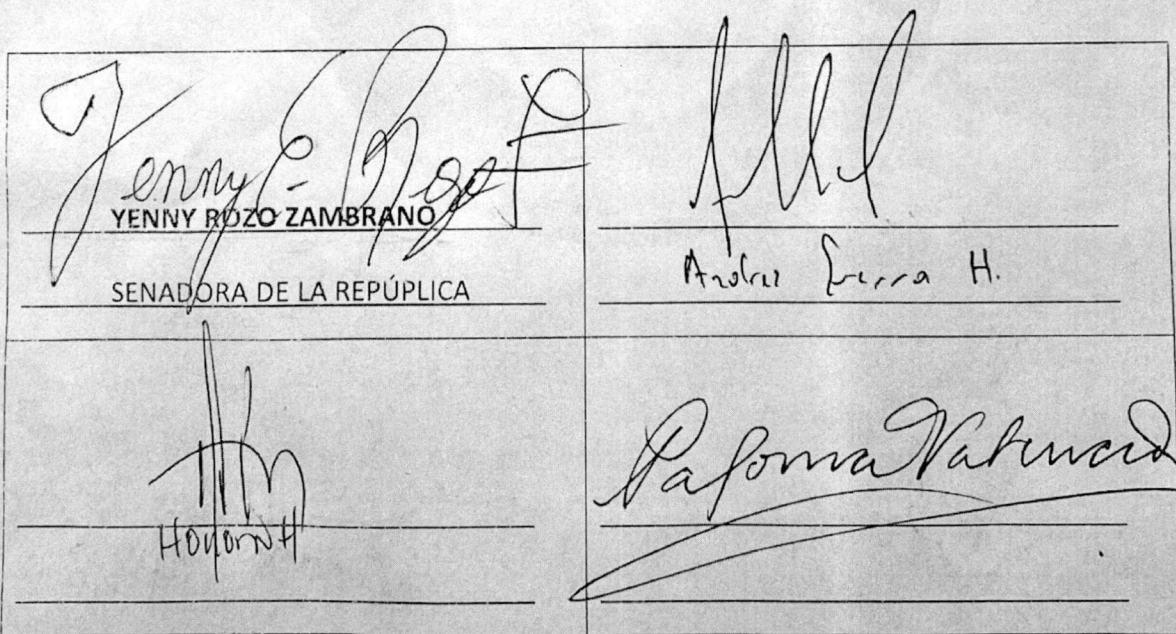 Yenny E. Rozo Z
YENNY ROZO ZAMBRANO
SENADORA DE LA REPÚPLICA
Andres Guerra H.
Paloma Valencia